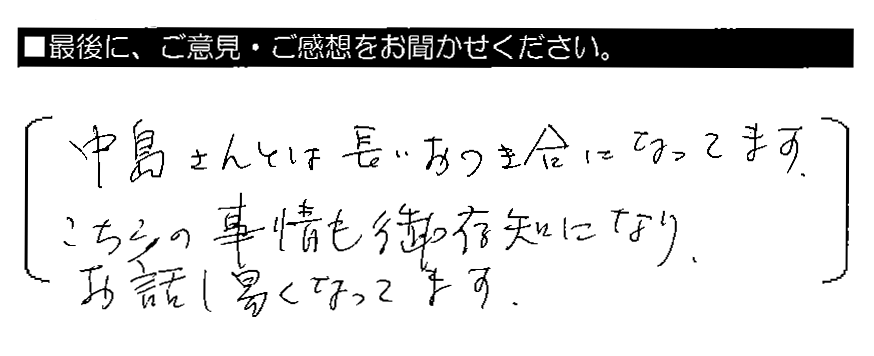 ■最後に、ご意見・ご感想をお聞かせください。
中島さんとは長いおつき合になってます。
こちらの事情も御存知になり、
お話し易くなってます。